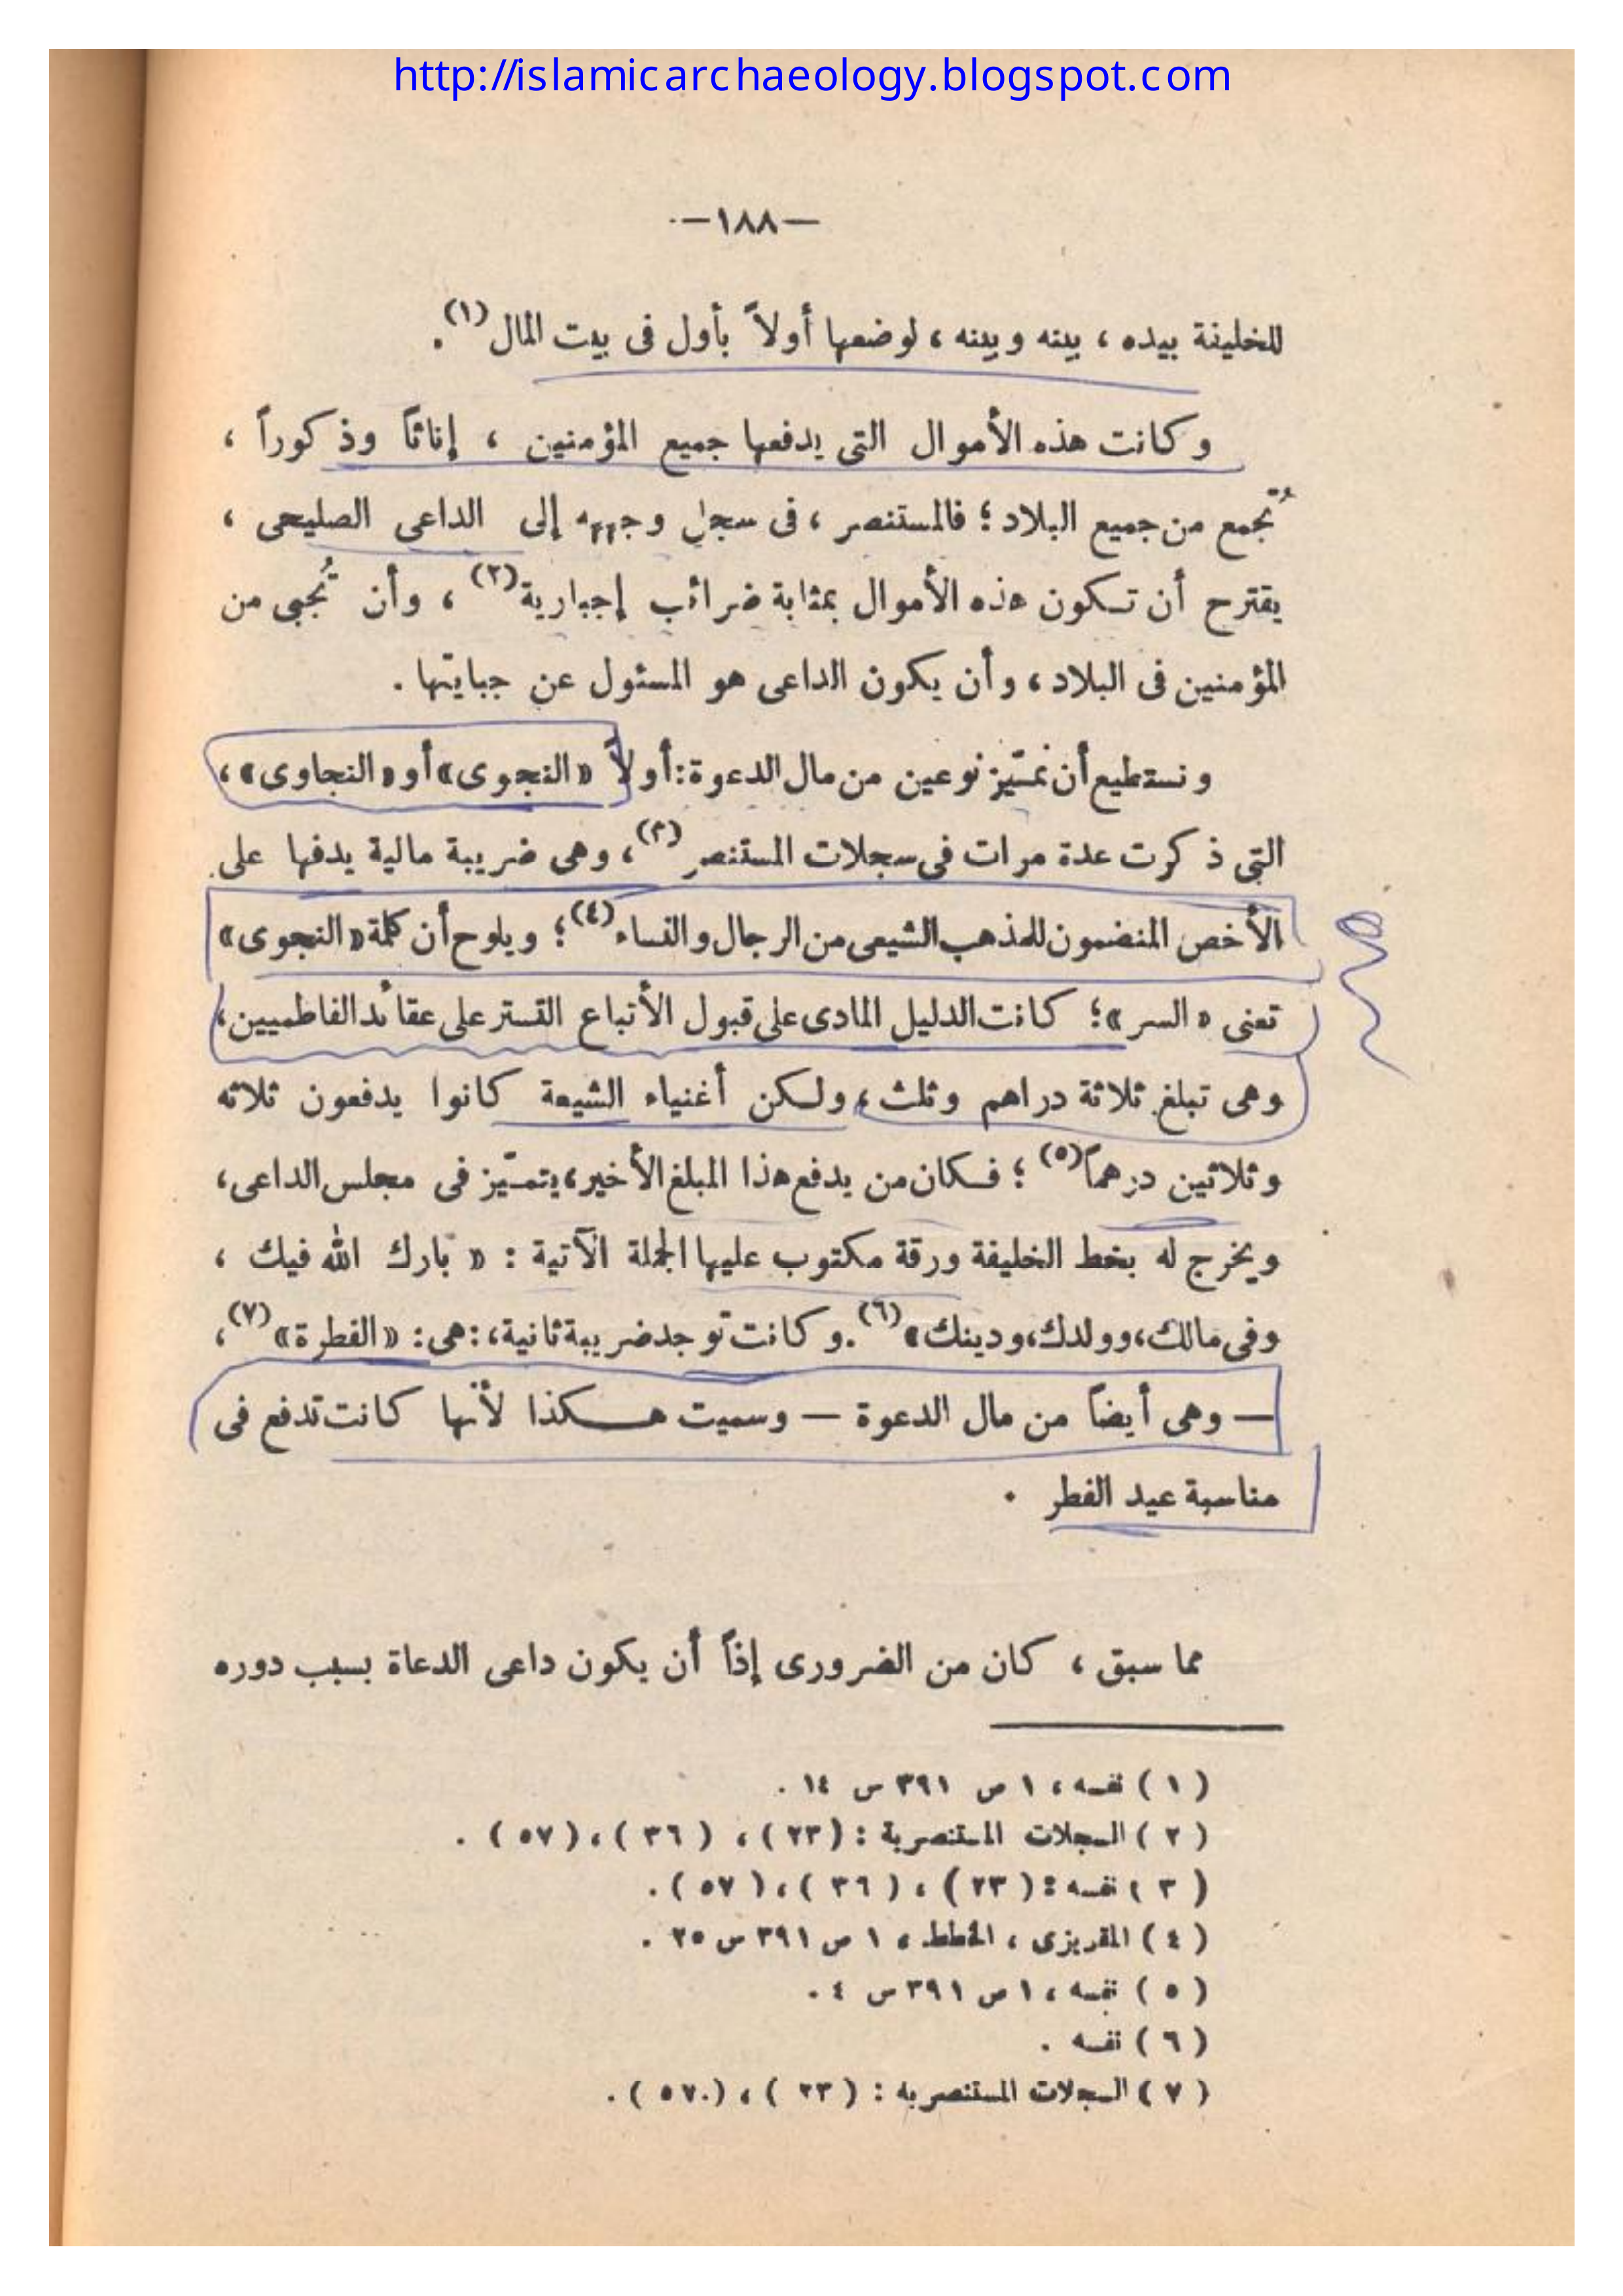 http://islamicarchaeology.blogspot.com
—١٨٨—
للخليفة بيده ، بينه وبينه ، لوضعها أولاً بأول فى بيت المال(١) .
وكانت هذه الأموال التى يدفعها جميع المؤمنين ، إناثاً وذكوراً ،
تُجمع من جميع البلاد ؛ فالمستنصر ، فى سجل وجهه إلى الداعى الصليحى ،
يقترح أن تكون هذه الأموال بمثابة ضرائب إجبارية(٢) ، وأن تُجبى من
المؤمنين فى البلاد ، وأن يكون الداعى هو المسئول عن جبايتها .
ونستطيع أن نميّز نوعين من مال الدعوة : أولاً «النجوى» أو «النجاوى» ،
التى ذكرت عدة مرات فى سجلات المستنصر(٣) ، وهى ضريبة مالية يدفها على
الأخص المنضمون للمذهب الشيعى من الرجال والنساء(٤) ؛ ويلوح أن كلمة «النجوى»
تعنى «السر» ؛ كانت الدليل المادى على قبول الأتباع التستر على عقائد الفاطميين ،
وهى تبلغ ثلاثة دراهم وثلث ، ولكن أغنياء الشيعة كانوا يدفعون ثلاثه
وثلاثين درهماً(٥) ؛ فكان من يدفع هذا المبلغ الأخير ، يتميّز فى مجلس الداعى ،
ويخرج له بخط الخليفة ورقة مكتوب عليها الجملة الآتية : « بارك الله فيك ،
وفى مالك ، وولدك ، ودينك »(٦) . وكانت توجد ضريبة ثانية ، : هى : «الفطرة»(٧) ،
— وهى أيضاً من مال الدعوة — وسميت هكذا لأنها كانت تدفع فى
مناسبة عيد الفطر .
مما سبق ، كان من الضرورى إذاً أن يكون داعى الدعاة بسبب دوره
( ١ ) نفسه ، ١ ص ٣٩١ س ١٤ .
( ٢ ) السجلات المستنصرية : ( ٢٣ ) ، ( ٣٦ ) ، ( ٥٧ ) .
( ٣ ) نفسه : ( ٢٣ ) ، ( ٣٦ ) ، ( ٥٧ ) .
( ٤ ) المقريزى ، الخطط ، ١ ص ٣٩١ س ٢٥ .
( ٥ ) نفسه ، ١ ص ٣٩١ س ٤ .
( ٦ ) نفسه .
( ٧ ) السجلات المستنصريه : ( ٢٣ ) ، ( ٥٧ ) .